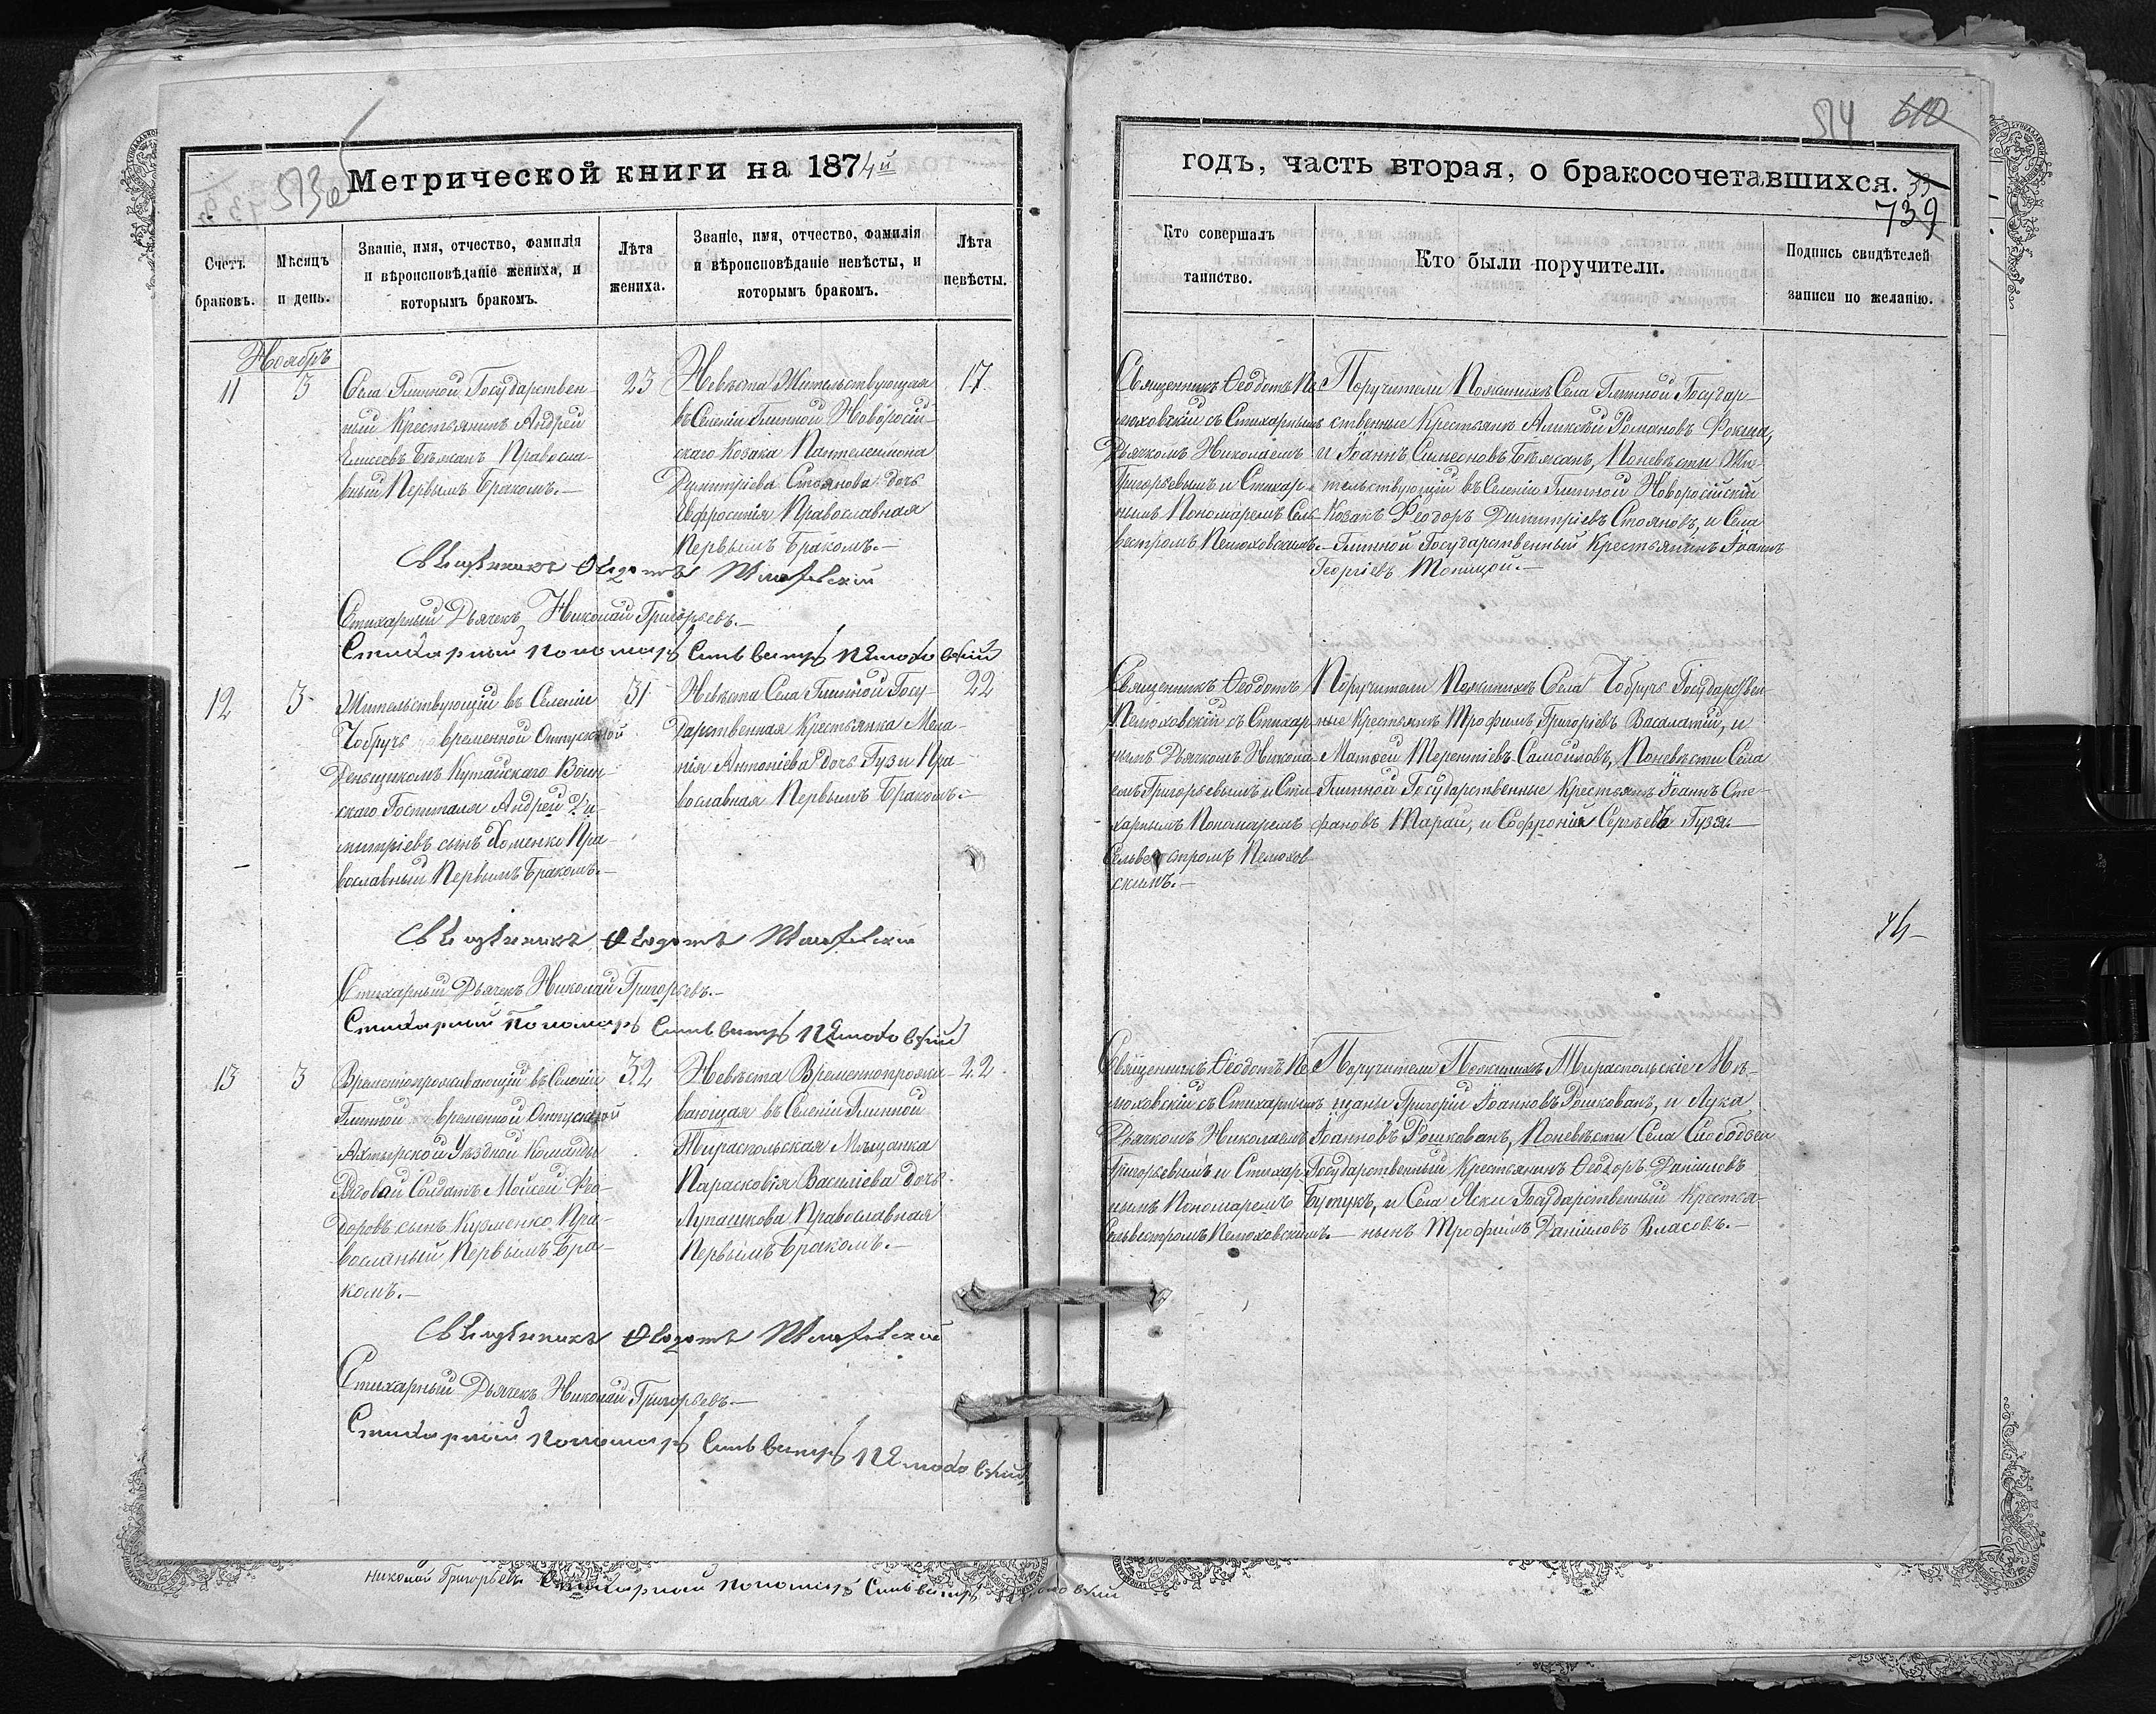 513
Метрической книги на 1874й
Счетъ браковъ.
Мѣсяцъ и день.
Званіе, имя, отчество, фамилія
и вѣроисповѣданіе жениха, и
которымъ бракомъ.
Лѣта
жениха.
Званіе, имя, отчество, фамилія
и вѣроисповѣданіе невѣсты, и
которымъ бракомъ.
Лѣта
невѣсты.
Ноябрь
11
3
Села Глинной Государствен-
ный Крестьянинъ Андрей
Елисеевъ Бѣжанъ Правосла-
вный Первымъ Бракомъ.—
23
Невѣста Жительствующая
въ Селеніи Глинной Новоросій-
скаго Козака Пантелеимона
Димитріева Стоянова дочь
Евфросинія Православная
Первымъ Бракомъ.—
17.
Священникъ Ѳеодотъ
Стихарный Дьячекъ Николай Григорьевъ.—
Стихарный пономарь Сильвестръ Пелюховскій
12
3
Жительствующій въ Селеніи
Чобручь временной Отпускной
Деньщикомъ Кутайскаго Воин-
скаго Госпиталя Андрей Ди-
митріевъ сынъ Хоменко Пра-
вославный Первымъ Бракомъ.—
31
Невѣста Села Глинной Госу-
дарственная Крестьянка Мела-
нія Антоніева дочь Гузи Пра-
вославная Первымъ Бракомъ.—
22
Священникъ Ѳеодотъ
Стихарный Дьячекъ Николай Григорьевъ.—
Стихарный пономарь Сильвестръ Пелюховскій
13
3
Временнопроживающій въ Селеніи
Глинной временной Отпускной
Ахтырской Уѣздной Команды
Рядовой Солдатъ Моисей Ѳео-
доровъ сынъ Кузменко Пра-
вославный Первымъ Бра-
комъ.—
32
Невѣста Временнопрожи-
вающая въ Селеніи Глинной
Тираспольская Мѣщанка
Парасковія Василіева дочь
Лупашкова Православная
Первымъ Бракомъ.—
22.
Священникъ Ѳеодотъ
Стихарный Дьячекъ Николай Григорьевъ.—
Стихарный пономарь Сильвестръ Пелюховскій
Николай Григорьевъ Стихарный пономарь Сильвестръ Пелюховскій
514 610
годъ, часть вторая, о бракосочетавшихся.
33
739
Кто совершалъ
таинство.
Кто были поручители.
Подпись свидѣтелей
записи по желанію.
Священникъ Ѳеодотъ Пе-
люховскій съ Стихарнымъ
Дьячкомъ Николаемъ
Григорьевымъ и Стихар-
нымъ Пономаремъ Силь-
вестромъ Пелюховскимъ.—
Поручители Поженихѣ Села Глинной Государ-
ственные Крестьяне Алексѣй Романовъ Рокша,
и Іоаннъ Симеоновъ Бѣжанъ, Поневѣсти Жи-
тельствующій въ Селеніи Глинной Новоросійскій
Козакъ Ѳеодоръ Димитріевъ Стояновъ, и Села
Глинной Государственный Крестьянинъ Іоаннъ
Георгіевъ Топицой.—
Священникъ Ѳеодотъ
Пелюховскій съ Стихар-
нымъ Дьячкомъ Никола-
емъ Григорьевымъ и Сти-
харнымъ Пономаремъ
Сельвестромъ Пелюхов-
скимъ.—
Поручители Поженихѣ Села Чобручь Государствен-
ные Крестьяне Трофимъ Григоріевъ Василатій, и
Матѳей Терентіевъ Самойловъ, Поневѣсти Села
Глинной Государственные Крестьяне Іоаннъ Сте-
фановъ Таран, и Софроній Сергѣевъ Гузя.—
Священникъ Ѳеодотъ Пе-
люховскій съ Стихарнымъ
Дьячкомъ Николаемъ
Григорьевымъ и Стихар-
нымъ Пономаремъ
Сельвестромъ Пелюховскимъ.—
Поручители Поженихѣ Тираспольскіе Мѣ-
щаны Григорій Іоанновъ Рошкованъ, и Лука
Іоанновъ Рошкованъ, Поневѣсти Села Слободзеи
Государственный Крестьянинъ Ѳеодоръ Даніиловъ
Бутукъ, и Села Яски Государственный Крестья-
нинъ Трофимъ Даніиловъ Власовъ.—